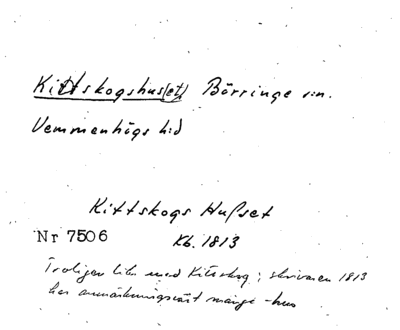 Kittskogshus(et) Börringe s:n.
Vemmenhögs hd
Kittskogs Hußet
Nr 7506 Kb. 1813
Troligen lika med Kittskog; skrivaren 1813
har anmärkningsvärt många -hus